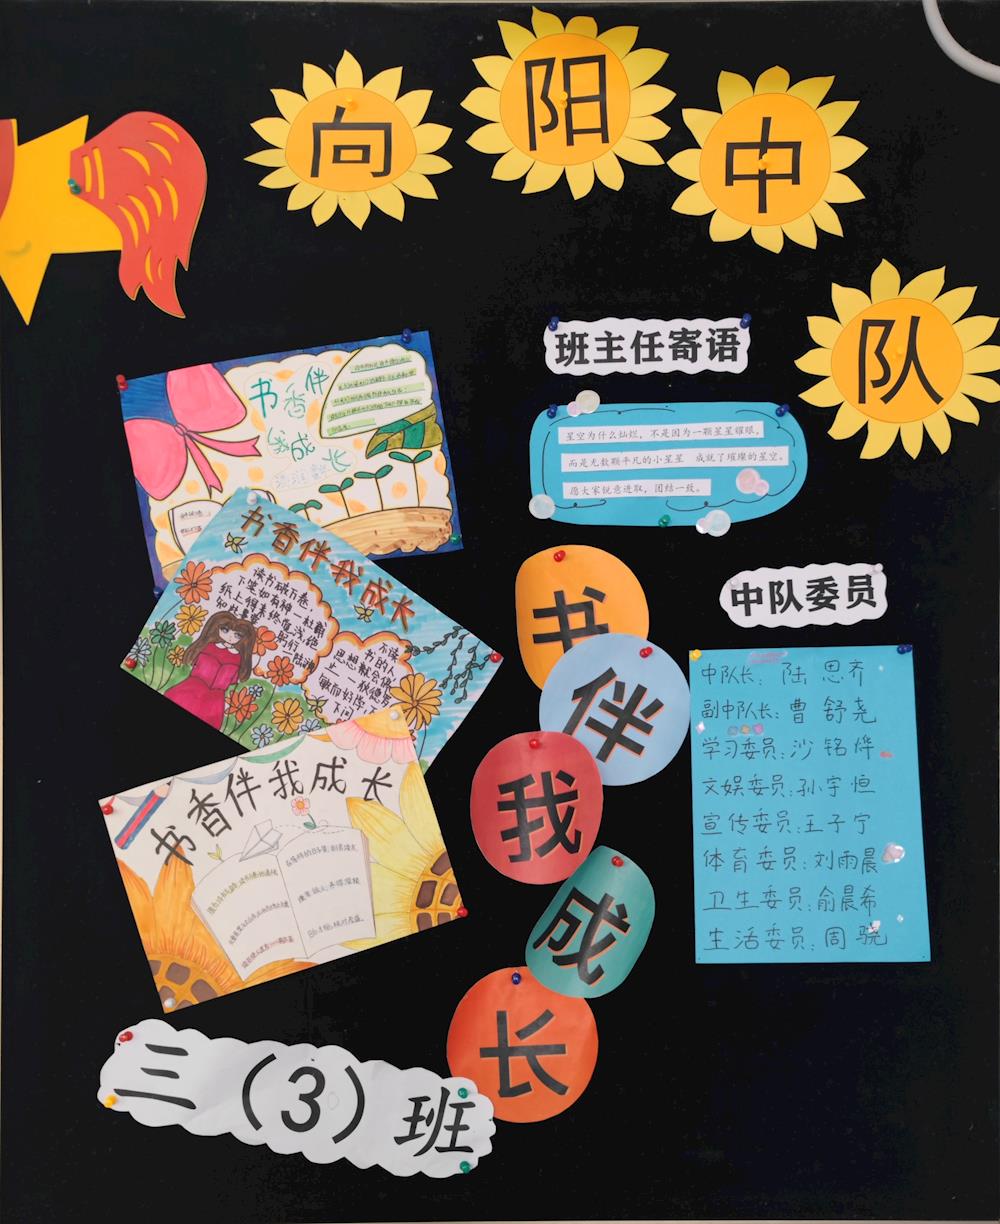 向阳中队
班主任寄语
星空为什么灿烂，不是因为一颗星星耀眼，
而是无数颗平凡的小星星 成就了璀璨的星空。
愿大家锐意进取，团结一致。
书香伴
我成长
书香伴我成长
读书破万卷，
下笔如有神—杜甫
纸上得来终觉浅，绝
知此事要
躬行
—陆游
不读
书的人
思想就会停
止——狄德罗
敏而好学，不
下问
书香伴我成长
书伴我成长
中队委员
中队长：陆思齐
副中队长：曹舒尧
学习委员：沙铭烨
文娱委员：孙宇恒
宣传委员：王子宁
体育委员：刘雨晨
卫生委员：俞晨希
生活委员：周骁
三（3）班